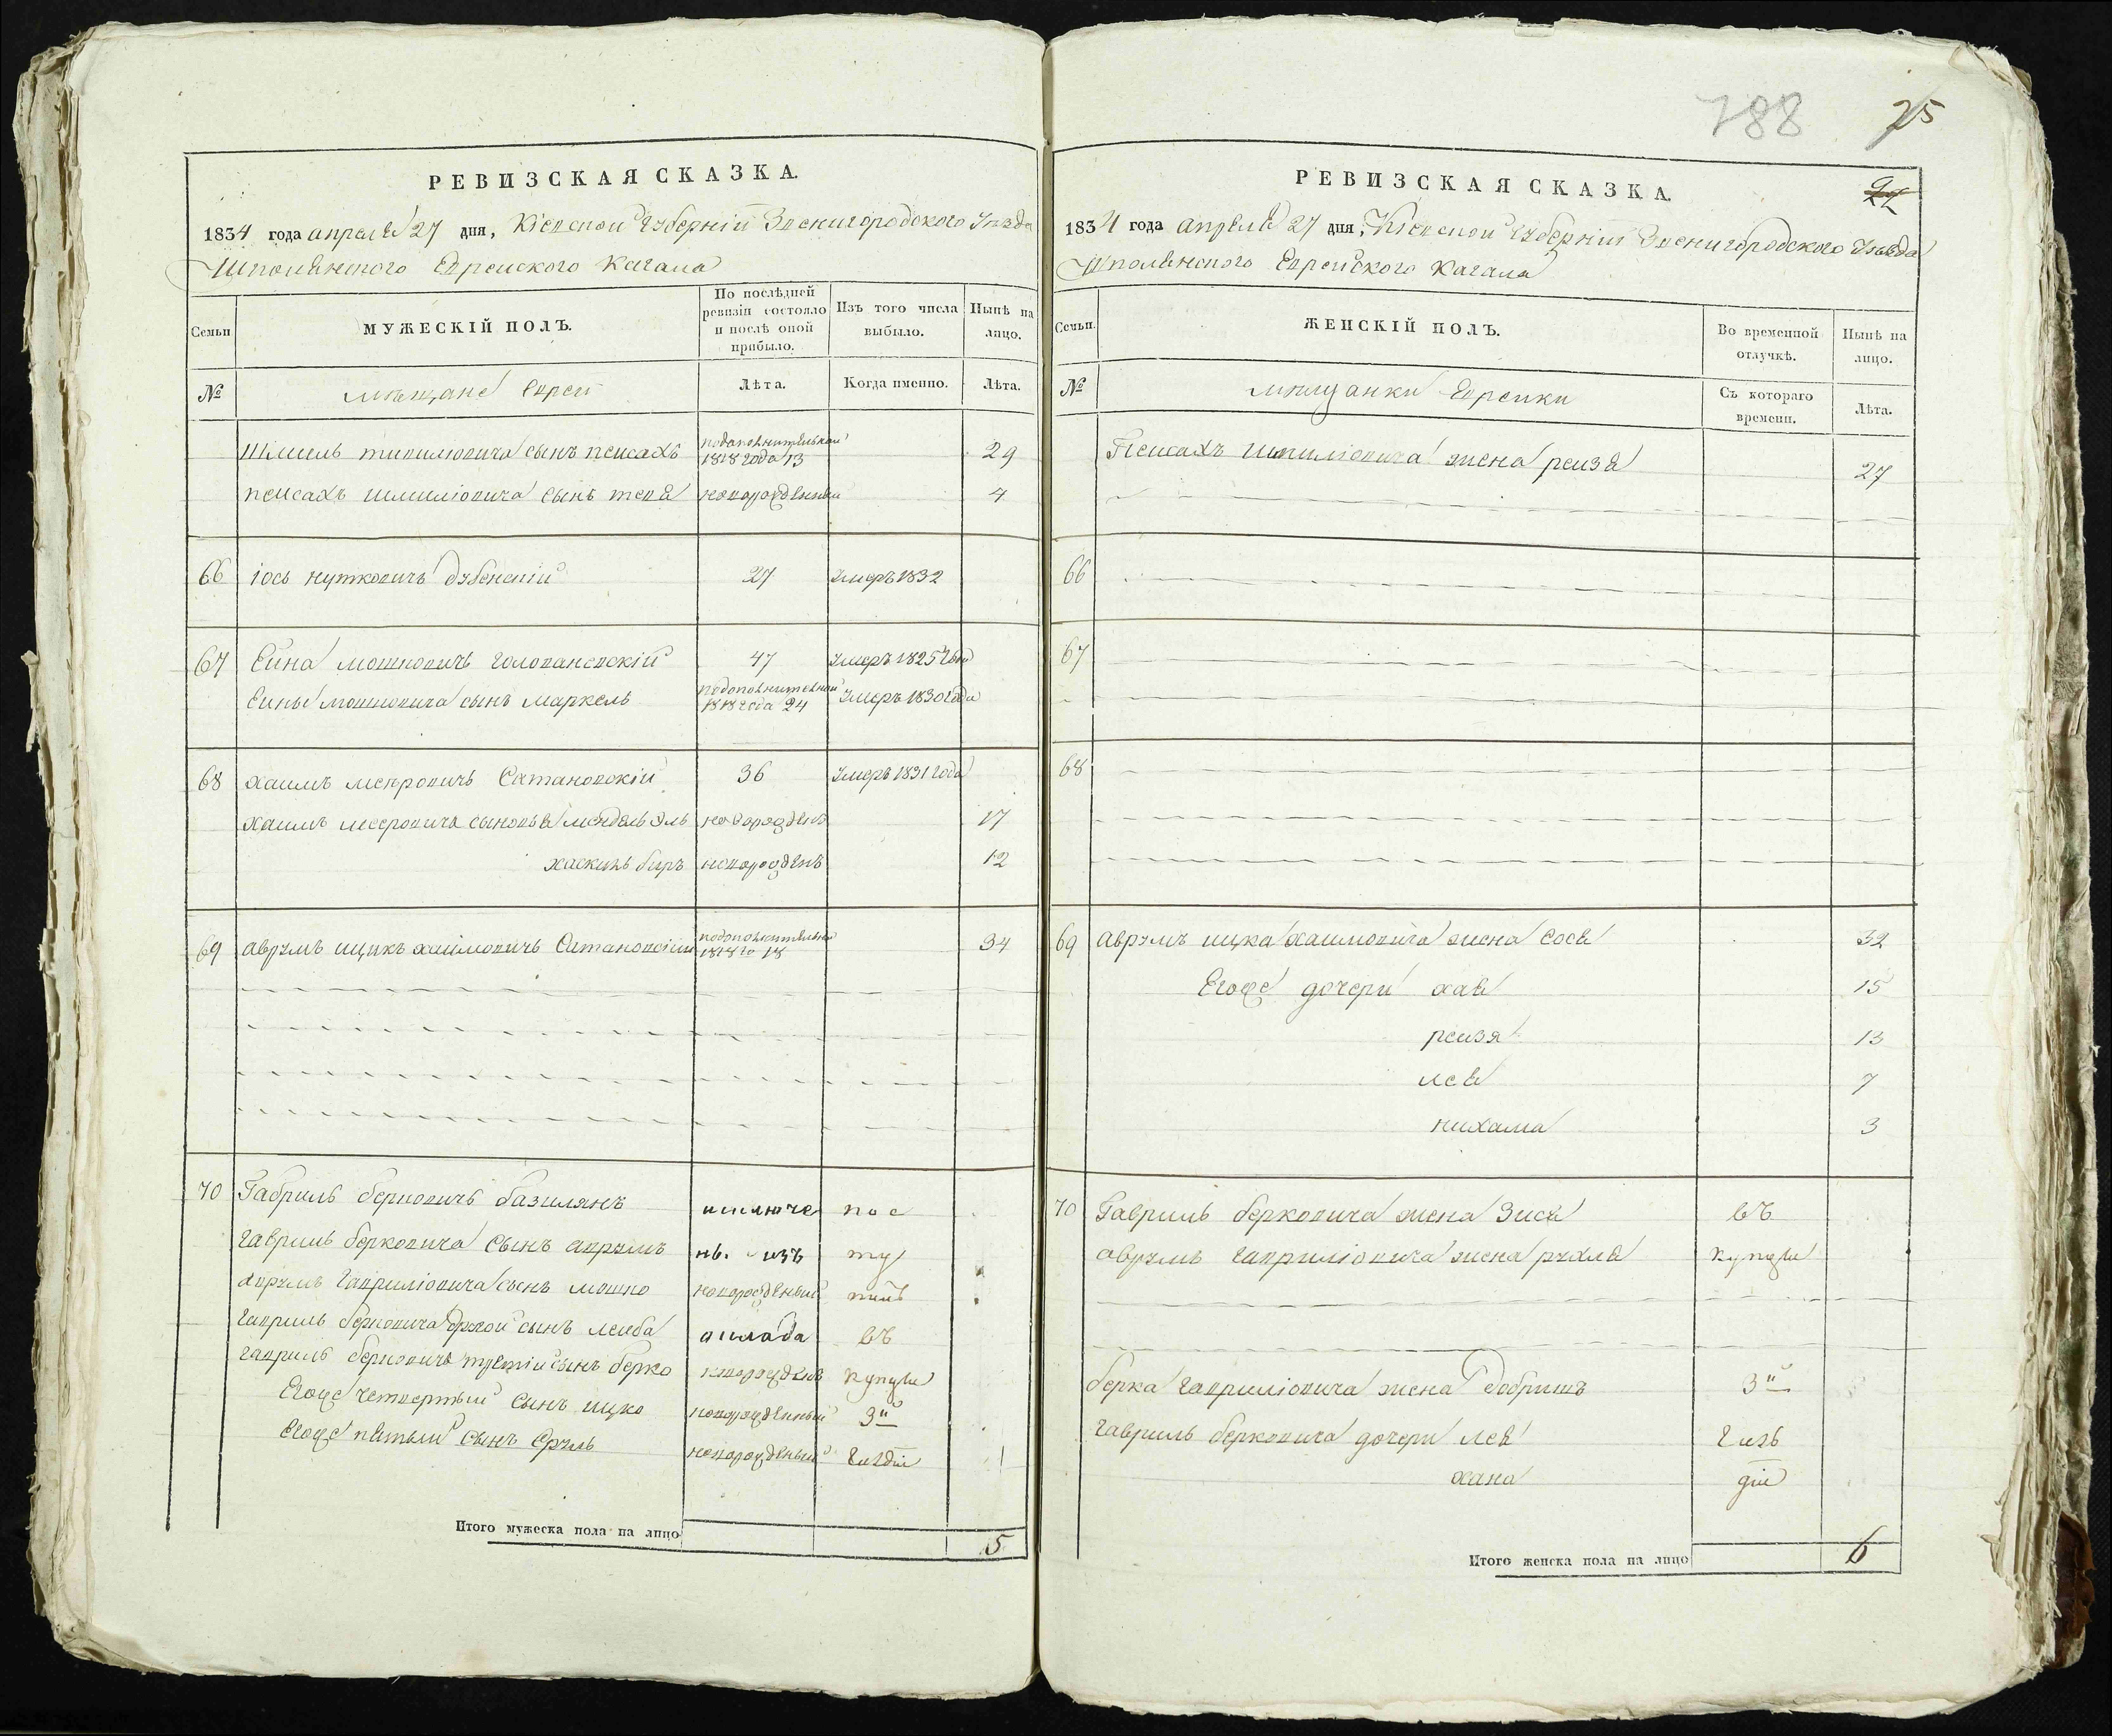 РЕВИЗСКАЯ СКАЗКА.
1834 года апреля 27 дня, Кіевской Губерніи Звенигородского Уезда
Шполянского Еврейского Кагала
Семьи
МУЖЕСКІЙ ПОЛЪ.
По послѣдней ревизіи состояло и послѣ оной прибыло.
Изъ того числа выбыло.
Нынѣ на лицо.
№
мещане Евреи
Лѣта.
Когда именно.
Лѣта.
сынъ пейсахъ 1818 года 13 29
пейсахъ шмиліовича сынъ новорожденный 4
66 іось нутковичъ дубенскій 27 Умеръ 1832
67 Ейна мошковичъ головановскій 47 Умеръ 1825 года
Ейны мошковича сынъ маркель 1818 года 24 Умеръ 1830 года
68 хаимъ меировичъ Сатановскій 36 Умеръ 1831 года
хаимъ меєровича сыновья мендель новорожденъ 17
новорожденъ 12
69 аврумъ ицикъ хаимовичъ Сатановскій 1818 го 18 34
70 Габриль берковичъ базилянъ исключе пос
гавриль берковича сынъ аврумъ нъ. изъ ту
аврумъ гавриліовича сынъ мошко новорожденый
гавриль берковича другой сынъ лейба оклада въ
гавриль берковича третій сынъ берко новорожденъ купцы
Егоже четвертый сынъ ицко новорожденный 3й
Егоже пятый сынъ Сруль новорожденый Гилдіи
Итого мужеска пола на лицо 5
788 25
РЕВИЗСКАЯ СКАЗКА.
1834 года апреля 27 дня, Кіевской Губерніи Звенигородского Уезда
Шполянского Еврейского Кагала
Семьи.
ЖЕНСКІЙ ПОЛЪ.
Во временной отлучкѣ.
Нынѣ на лицо.
№
мещанки Еврейки
Съ котораго времени.
Лѣта.
Пейсахъ шмиліовича жена рейзя 27
66
67
68
69 аврумъ ицка хаимовича жена сося 32
Егоже дочери хая 15
рейзя 13
лея 7
нихама 3
70 Гавриль берковича жена Зися въ
аврумъ гавриліовича жена рухля купцы
берка гавриліовича жена добришъ 3й
гавриль берковича дочери лея Гиль
хана діи
Итого женска пола на лицо 6